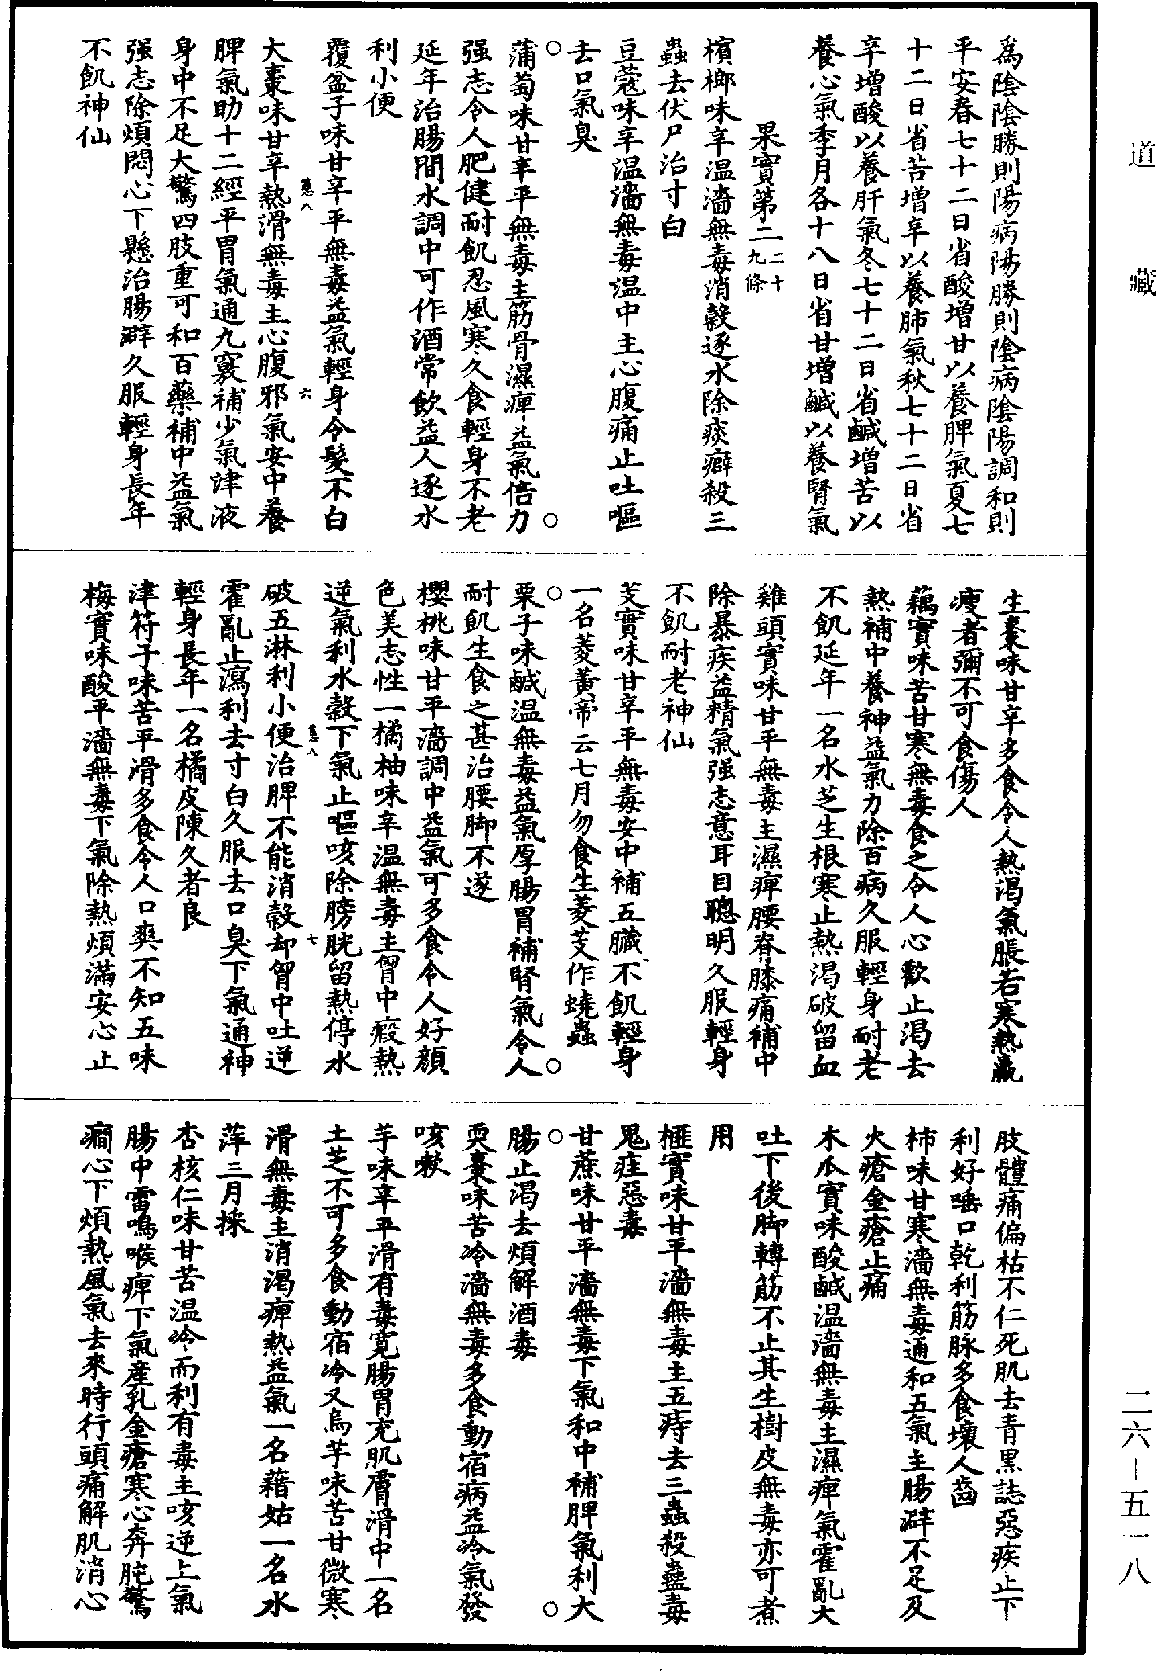 道藏
二六—五一八
為陰陰勝則陽病陽勝則陰病陰陽調和則
平安春七十二日省酸增甘以養脾氣夏七
十二日省苦增辛以養肺氣秋七十二日省
辛增酸以養肝氣冬七十二日省鹹增苦以
養心氣季月各十八日省甘增鹹以養腎氣
果實第二二十九條
檳榔味辛溫濇無毒消穀逐水除痰癖殺三
蟲去伏尸治寸白
豆蔻味辛溫濇無毒溫中主心腹痛止吐嘔
去口氣臭
蒲萄味甘辛平無毒主筋骨濕痺益氣倍力
强志令人肥健耐飢忍風寒久食輕身不老
延年治腸間水調中可作酒常飲益人逐水
利小便
覆盆子味甘辛平無毒益氣輕身令髮不白
大棗味甘辛熱滑無毒主心腹邪氣安中養
脾氣助十二經平胃氣通九竅補少氣津液
身中不足大驚四肢重可和百藥補中益氣
强志除煩悶心下懸治腸澼久服輕身長年
不飢神仙
生棗味甘辛多食令人熱渴氣脹若寒熱羸
瘦者彌不可食傷人
藕實味苦甘寒無毒食之令人心歡止渴去
熱補中養神益氣力除百病久服輕身耐老
不飢延年一名水芝生根寒止熱渴破留血
雞頭實味甘平無毒主濕痺腰脊膝痛補中
除暴疾益精氣强志意耳目聰明久服輕身
不飢耐老神仙
芰實味甘辛平無毒安中補五臟不飢輕身
一名菱黃帝云七月勿食生菱芰作蟯蟲
栗子味鹹溫無毒益氣厚腸胃補腎氣令人
耐飢生食之甚治腰脚不遂
櫻桃味甘平濇調中益氣可多食令人好顏
色美志性一橘柚味辛溫無毒主胷中瘕熱
逆氣利水穀下氣止嘔咳除膀胱留熱停水
破五淋利小便治脾不能消穀却胷中吐逆
霍亂止瀉利去寸白久服去口臭下氣通神
輕身長年一名橘皮陳久者良
津符子味苦平滑多食令人口爽不知五味
梅實味酸平濇無毒下氣除熱煩滿安心止
肢體痛偏枯不仁死肌去青黑誌惡疾止下
利好唾口乾利筋脉多食壞人齒
柿味甘寒濇無毒通和五氣主腸澼不足及
火瘡金瘡止痛
木瓜實味酸鹹溫濇無毒主濕痺氣霍亂大
吐下後脚轉筋不止其生樹皮無毒亦可煮
用
榧實味甘平濇無毒主五痔去三蟲殺蠱毒
鬼疰惡毒
甘蔗味甘平濇無毒下氣和中補脾氣利大
腸止渴去煩解酒毒
耎棗味苦冷濇無毒多食動宿病益冷氣發
咳嗽
芋味辛平滑有毒寬腸胃充肌膚滑中一名
土芝不可多食動宿冷又烏芋味苦甘微寒
滑無毒主消渴痺熱益氣一名藉姑一名水
萍三月採
杏核仁味甘苦溫冷而利有毒主咳逆上氣
腸中雷鳴喉痺下氣產乳金瘡寒心奔肫驚
癎心下煩熱風氣去來時行頭痛解肌消心